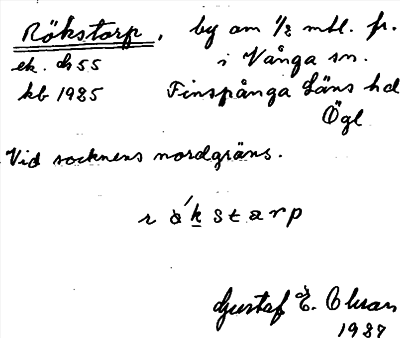 Rökstorp, by om 1/2 mtl. fr.
ek. ds 55 i Vånga sn.
kb 1985 Finspånga Läns hd
Ögl
Vid socknens nordgräns.
r ö́ k s t a r p
Gustaf E. Olsson
1987